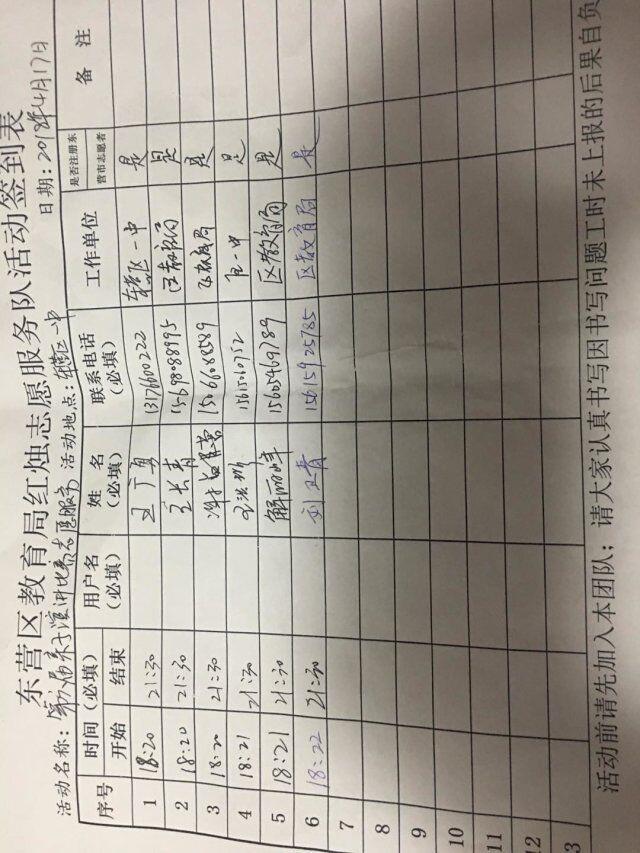 东营区教育局红烛志愿服务队活动签到表
活动名称: 亲子演讲比赛志愿服务 活动地点: 东营区一中 日期: 2018年4月17日
序号 时间(必填) 用户名(必填) 姓名(必填) 联系电话(必填) 工作单位 是否注册东营市志愿者 备注
开始 结束
1 18:20 21:30 13176600222 东营区一中 是
2 18:20 21:30 王长青 是
3 18:20 21:30 是
4 18:21 21:30 是
5 18:21 21:30 解丽峰 15605469789 区教育局 是
6 18:22 21:30 15615925785 区教育局 是
7
8
9
10
11
12
13
活动前请先加入本团队; 请大家认真书写因书写问题工时未上报的后果自负